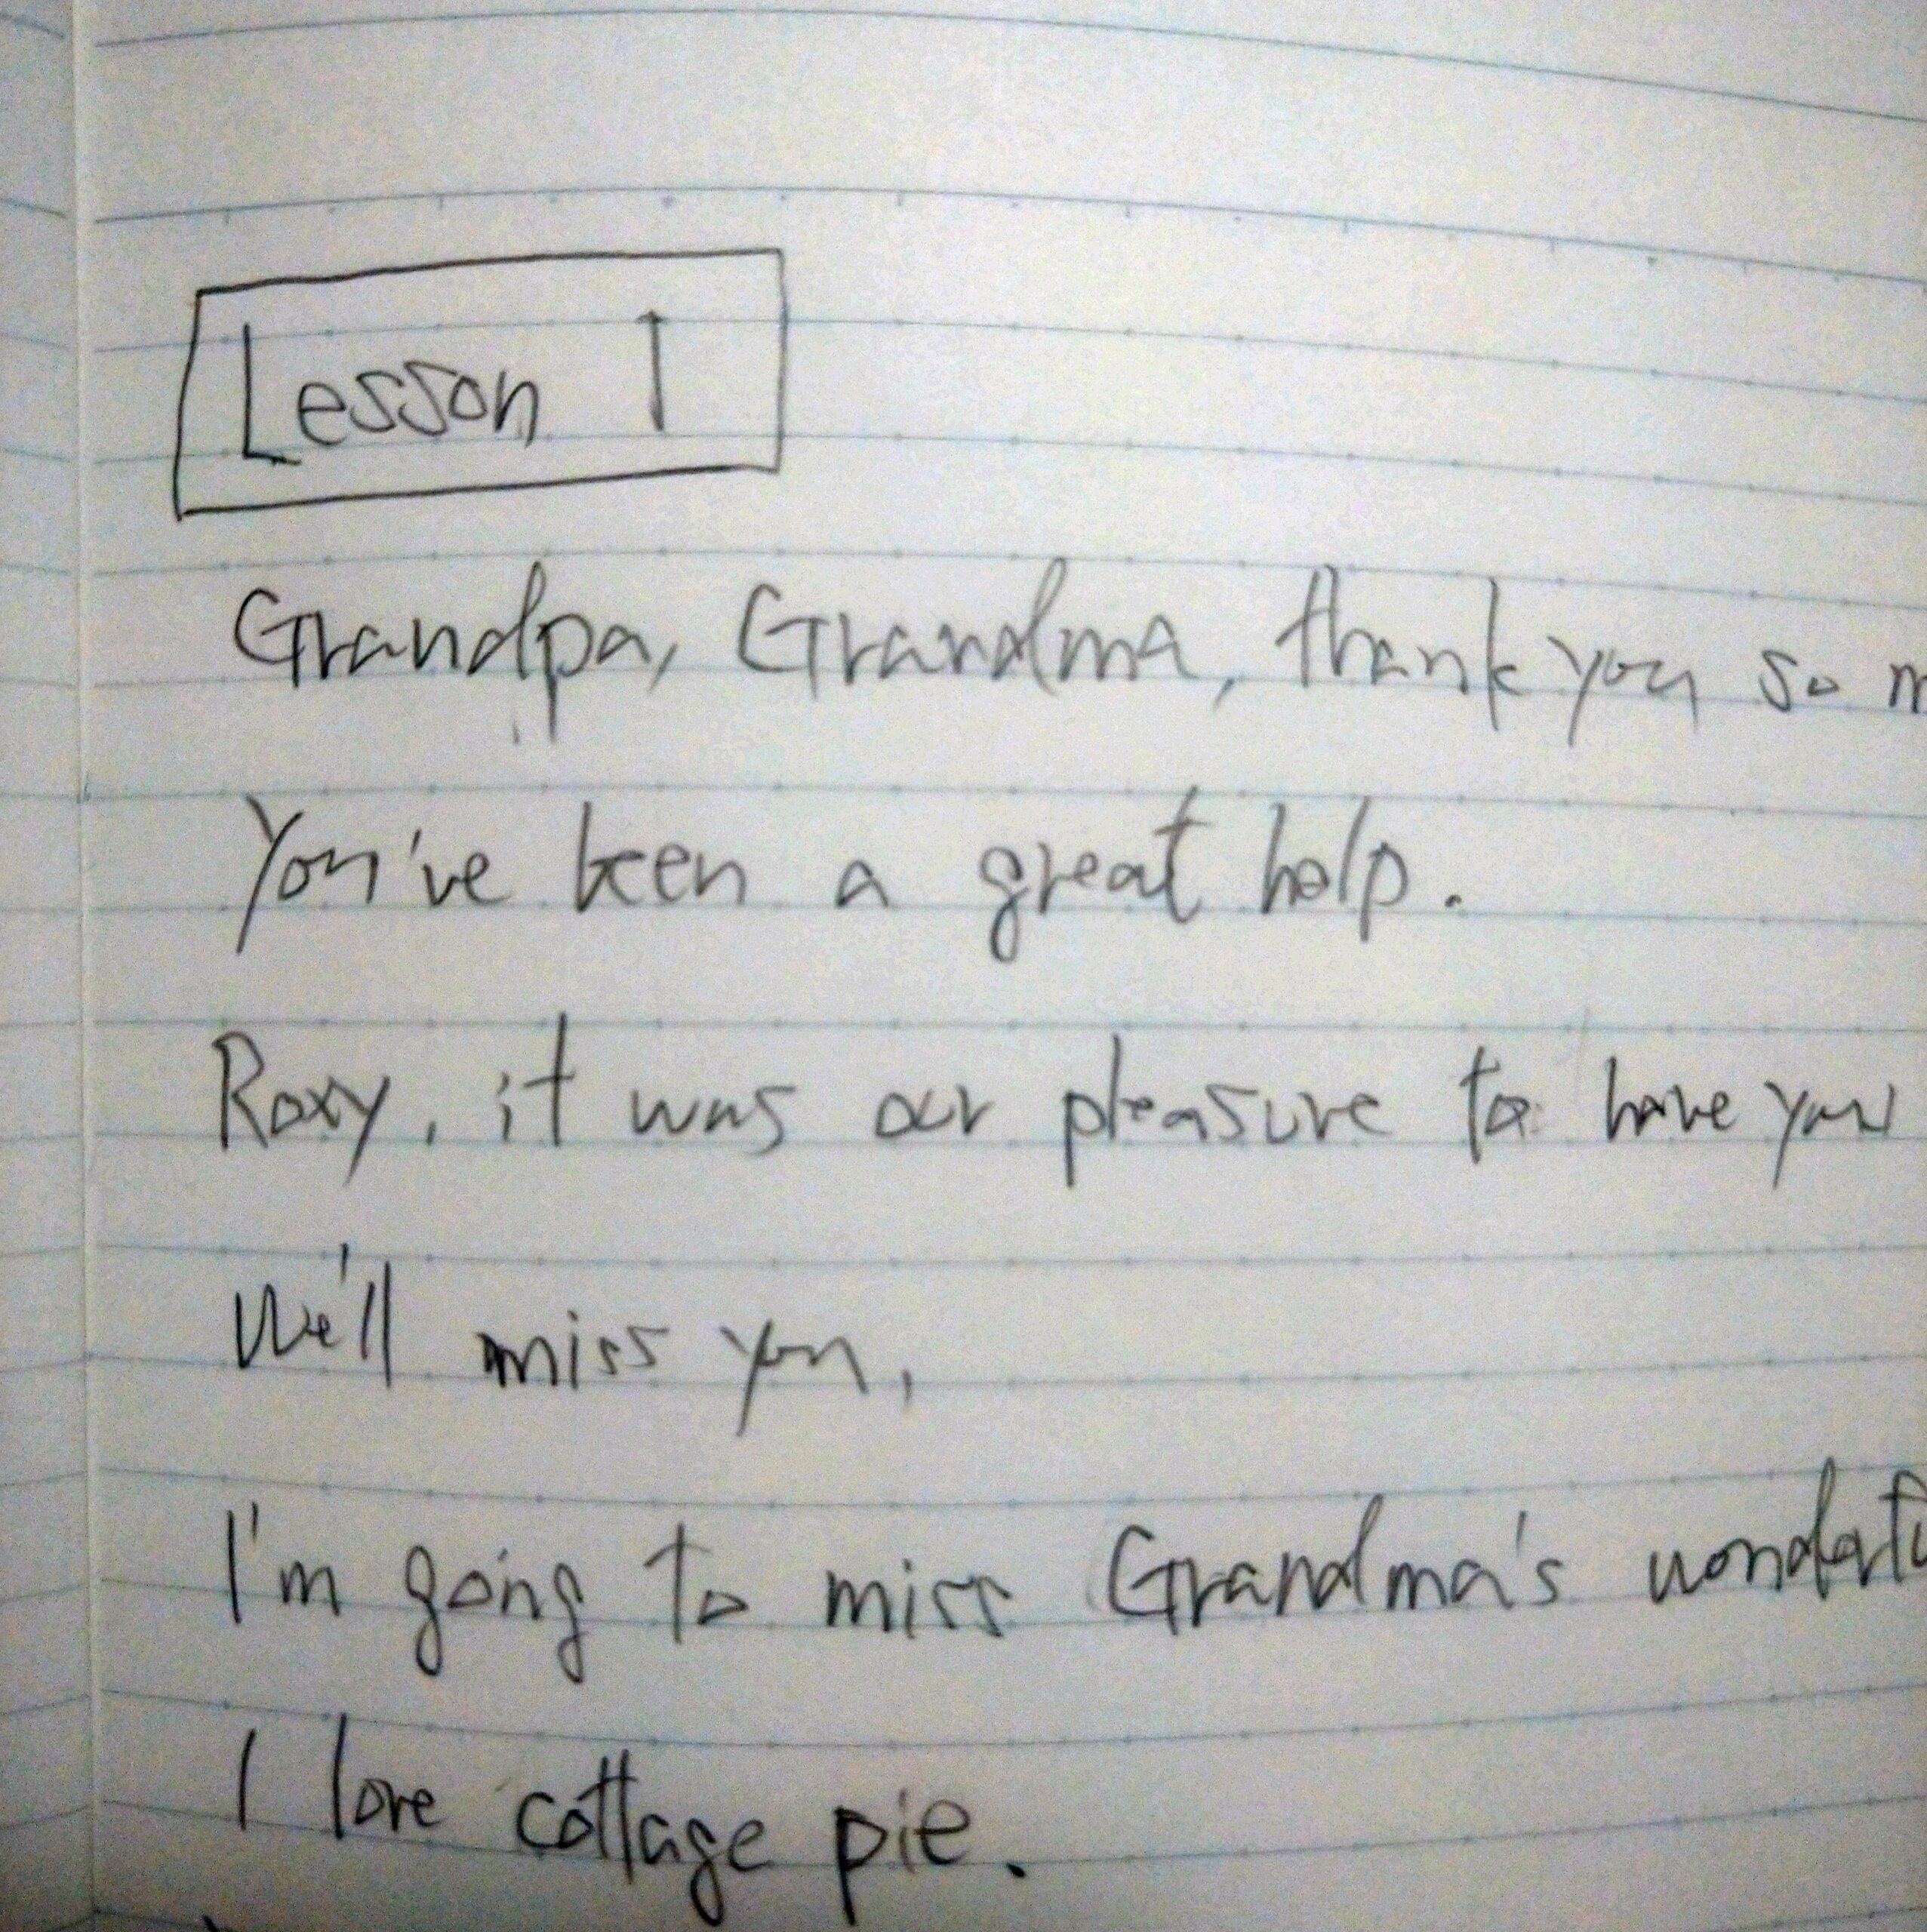 Lesson 1
Grandpa, Grandma, thank you so m
You've been a great help.
Roxy, it was our pleasure to have you
We'll miss you,
I'm going to miss Grandma's wonderfu
I love cottage pie.